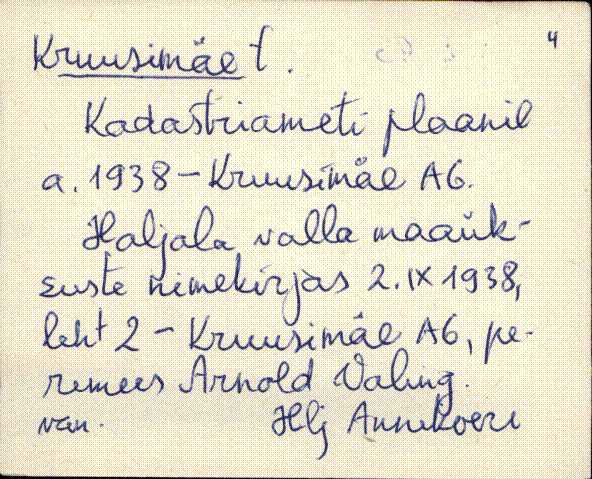 4
Kruusimäe t.
Kadastriameti plaanil
a. 1938 – Kruusimäe A6.
Haljala valla maaük-
suste nimekirjas 2.IX 1938,
leht 2 – Kruusimäe A6, pe-
remees Arnold Valing.
van. Hlj Annikvere